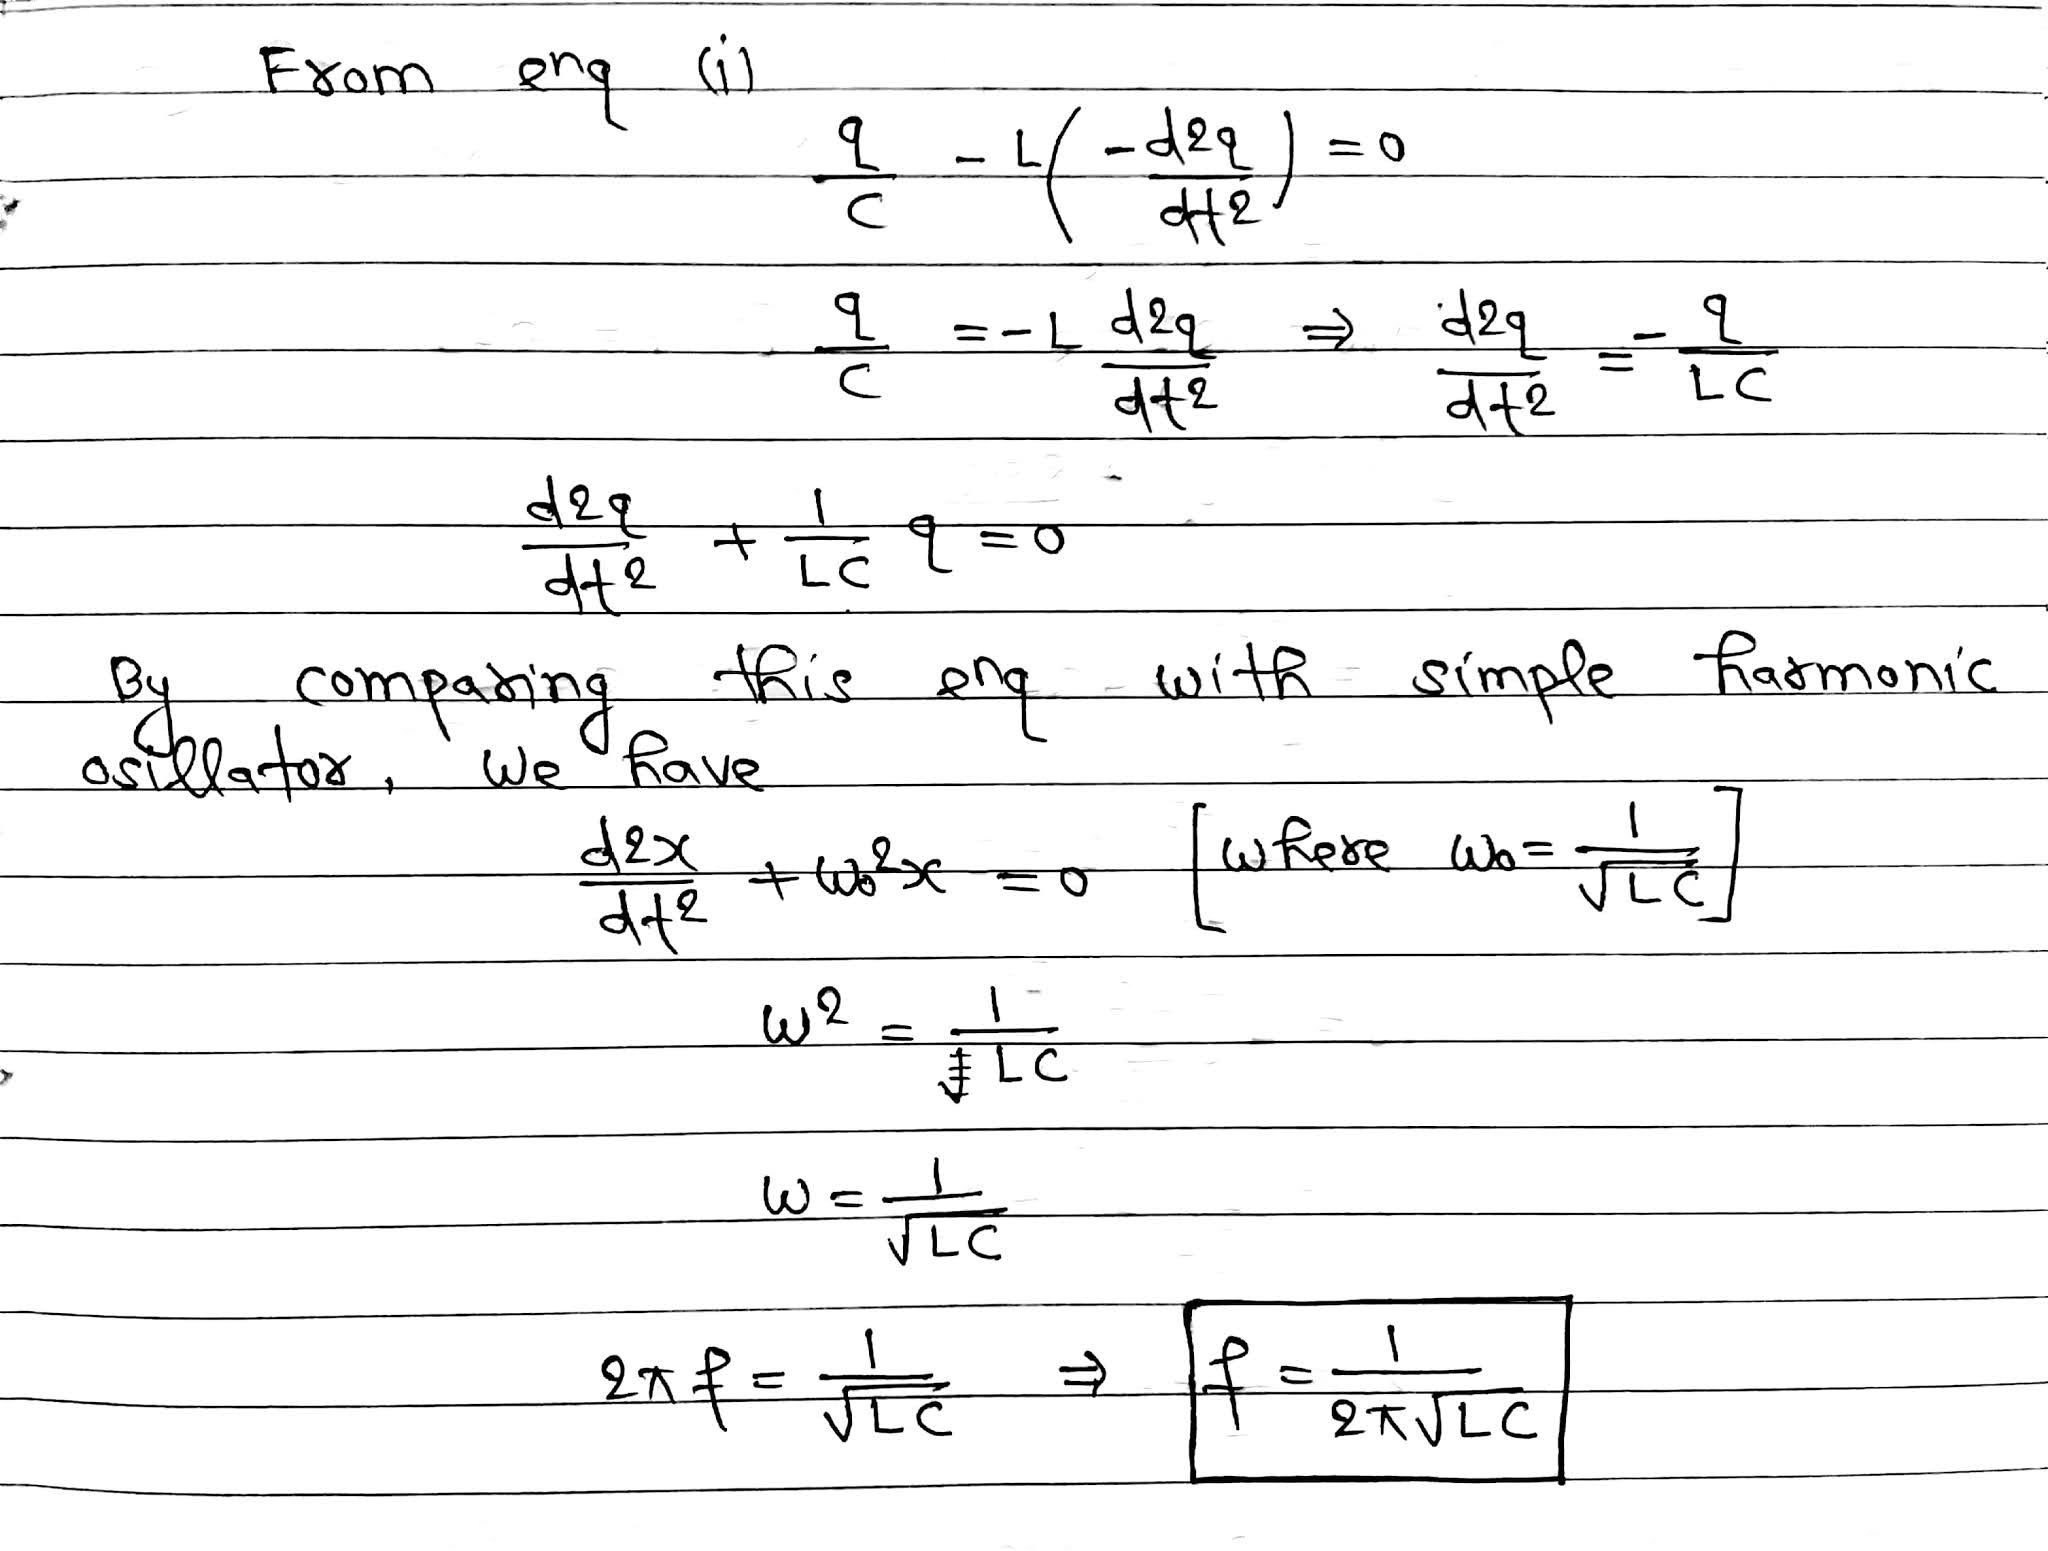 From enq (i)
q/C - L(-d2q/dt2) = 0
q/C = -L d2q/dt2 ⇒ d2q/dt2 = - q/LC
d2q/dt2 + 1/LC q = 0
By comparing this enq with simple harmonic
osillator, we have
d2x/dt2 + ω₀²x = 0 [where ω₀ = 1/√LC]
ω² = 1/LC
ω = 1/√LC
2πf = 1/√LC ⇒ f = 1/2π√LC